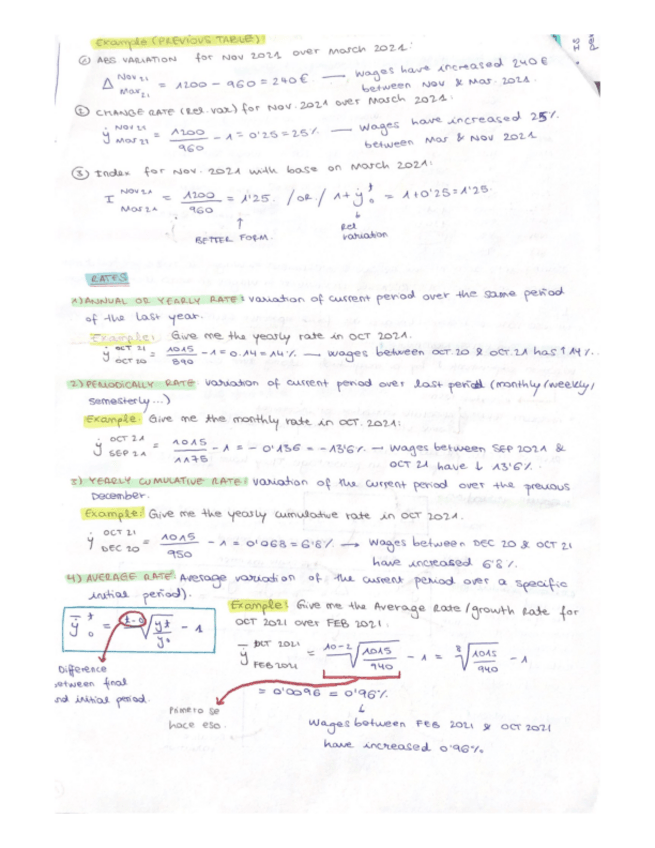 Example (PREVIOUS TABLE):
① ABS VARIATION for Nov 2021 over March 2021:
Δ Nov 21 Mar 21 = 1200 - 960 = 240 € — wages have increased 240 €
between Nov & Mar. 2021.
② CHANGE RATE (Rel. var) for Nov. 2021 over March 2021:
ẏ Nov 21 Mar 21 = 1200/960 - 1 = 0'25 = 25% — Wages have increased 25%
between Mar & Nov 2021
③ Index for Nov. 2021 with base on March 2021:
I Nov 21 Mar 21 = 1200/960 = 1'25. / OR / 1 + ẏ t 0 = 1 + 0'25 = 1'25.
↑ ↓
BETTER FORM. Rel
variation
RATES
1) ANNUAL OR YEARLY RATE: variation of current period over the same period
of the last year.
Example: Give me the yearly rate in OCT 2021.
ẏ OCT 21 OCT 20 = 1015/890 - 1 = 0.14 = 14% — wages between OCT.20 & OCT.21 has ↑ 14%.
2) PERIODICALLY RATE variation of current period over last period (monthly/weekly/
semesterly...)
Example: Give me the monthly rate in OCT. 2021:
ẏ OCT 21 SEP 21 = 1015/1175 - 1 = - 0'136 = -13'6% — Wages between SEP 2021 &
OCT 21 have ↓ 13'6%.
3) YEARLY CUMULATIVE RATE: variation of the current period over the previous
December.
Example: Give me the yearly cumulative rate in OCT 2021.
ẏ OCT 21 DEC 20 = 1015/950 - 1 = 0'068 = 6'8% → Wages between DEC 20 & OCT 21
have increased 6'8%.
4) AVERAGE RATE: Average variation of the current period over a specific
initial period).
Example: Give me the Average Rate/growth Rate for
OCT 2021 over FEB 2021:
ẏ t 0 = t-0 √ yt/y0 - 1
ẏ OCT 2021 FEB 2021 = 10-2 √ 1015/940 - 1 = 8 √ 1015/940 - 1
Difference
between final
and initial period.
= 0'0096 = 0'96%
Primero se
hace eso.
↓
Wages between FEB 2021 & OCT 2021
have increased 0'96%